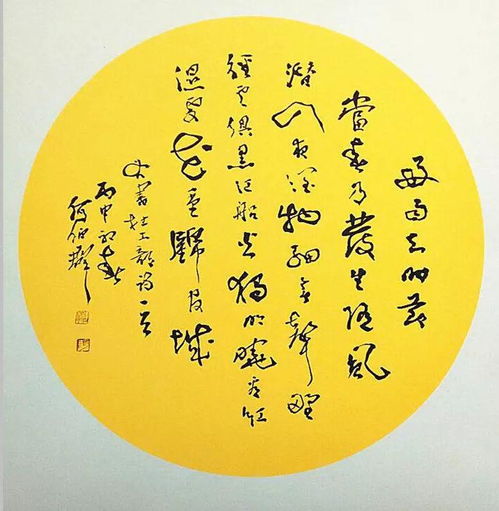 好雨知时節
當春乃發生随風
潜入夜潤物細無聲野
徑雲俱黑江船火獨明曉看紅
濕處花重錦官城
右書杜工部詩一首
丙申初春
何伯